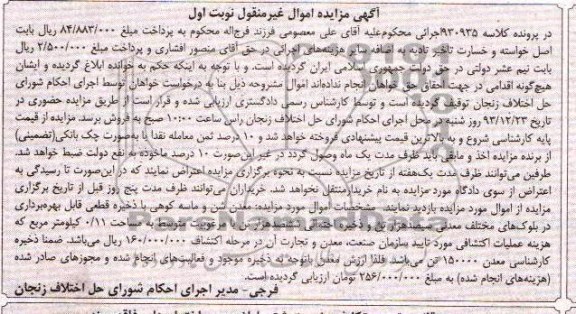 آگهی مزایده اموال غیرمنقول نوبت اول
در پرونده کلاسه ۹۳۰۹۳۵اجرائی محکوم‌علیه آقای علی معصومی فرزند فرج‌اله محکوم به پرداخت مبلغ ۸۴/۸۸۳/۰۰۰ ریال بابت
اصل خواسته و خسارت تاخیر تادیه به اضافه سایر هزینه‌های اجرائی در حق آقای منصور افشاری و پرداخت مبلغ ۲/۵۰۰/۰۰۰ ریال
بابت نیم عشر دولتی در حق دولت جمهوری اسلامی ایران گردیده است. و با توجه به اینکه حکم به خوانده ابلاغ گردیده و ایشان
هیچ‌گونه اقدامی در جهت احقاق حق خواهان انجام نداده‌اند اموال مشروحه ذیل بنا به درخواست خواهان توسط اجرای احکام شورای
حل اختلاف زنجان توقیف گردیده است و توسط کارشناس رسمی دادگستری ارزیابی شده و قرار است از طریق مزایده حضوری در
تاریخ ۹۳/۱۲/۲۳ روز شنبه در محل اجرای احکام شورای حل اختلاف زنجان راس ساعت ۱۰:۰۰ صبح به فروش برسد. مزایده از قیمت
پایه کارشناسی شروع و به بالاترین قیمت پیشنهادی فروخته خواهد شد و ۱۰ درصد ثمن معامله نقدا یا به‌صورت چک بانکی(تضمینی)
از برنده مزایده اخذ و مابقی باید ظرف مدت یک ماه وصول گردد در غیر این‌صورت ۱۰ درصد ماخوذه به نفع دولت ضبط خواهد شد.
طرفین می‌توانند ظرف مدت یک‌هفته از تاریخ مزایده نسبت به نحوه برگزاری مزایده اعتراض نمایند که در این‌صورت تا رسیدگی به
اعتراض از سوی دادگاه مورد مزایده به نام خریدارمنتقل نخواهد شد. خریداران می‌توانند ظرف مدت پنج روز قبل از تاریخ برگزاری
مزایده از اموال مورد مزایده بازدید نمایند. مشخصات اموال مورد مزایده: معدن شن و ماسه کوهی با ذخیره قطعی قابل بهره‌برداری
در بلوک‌های مختلف معدنی سیصدهزار تن و ذخیره احتمالی ششصدهزار تن با مرغوبیت متوسط به مساحت ۰/۱۱ کیلومتر مربع که
هزینه عملیات اکتشافی مورد تایید سازمان صنعت، معدن و تجارت آن در مرحله اکتشاف ۱۶۰/۰۰۰/۰۰۰ ریال می‌باشد. ضمنا ذخیره
کارشناسی معدن ۱۵۰۰۰۰ تن می‌باشد. فلذا ارزش معدن باتوجه به ذخیره موجود و فعالیت‌های انجام شده و مجوزهای صادر شده
(هزینه‌های انجام شده) به مبلغ ۲۵۶/۰۰۰/۰۰۰ تومان ارزیابی گردیده‌است.
فرجی- مدیر اجرای احکام شورای حل اختلاف زنجان
ParsNamadData